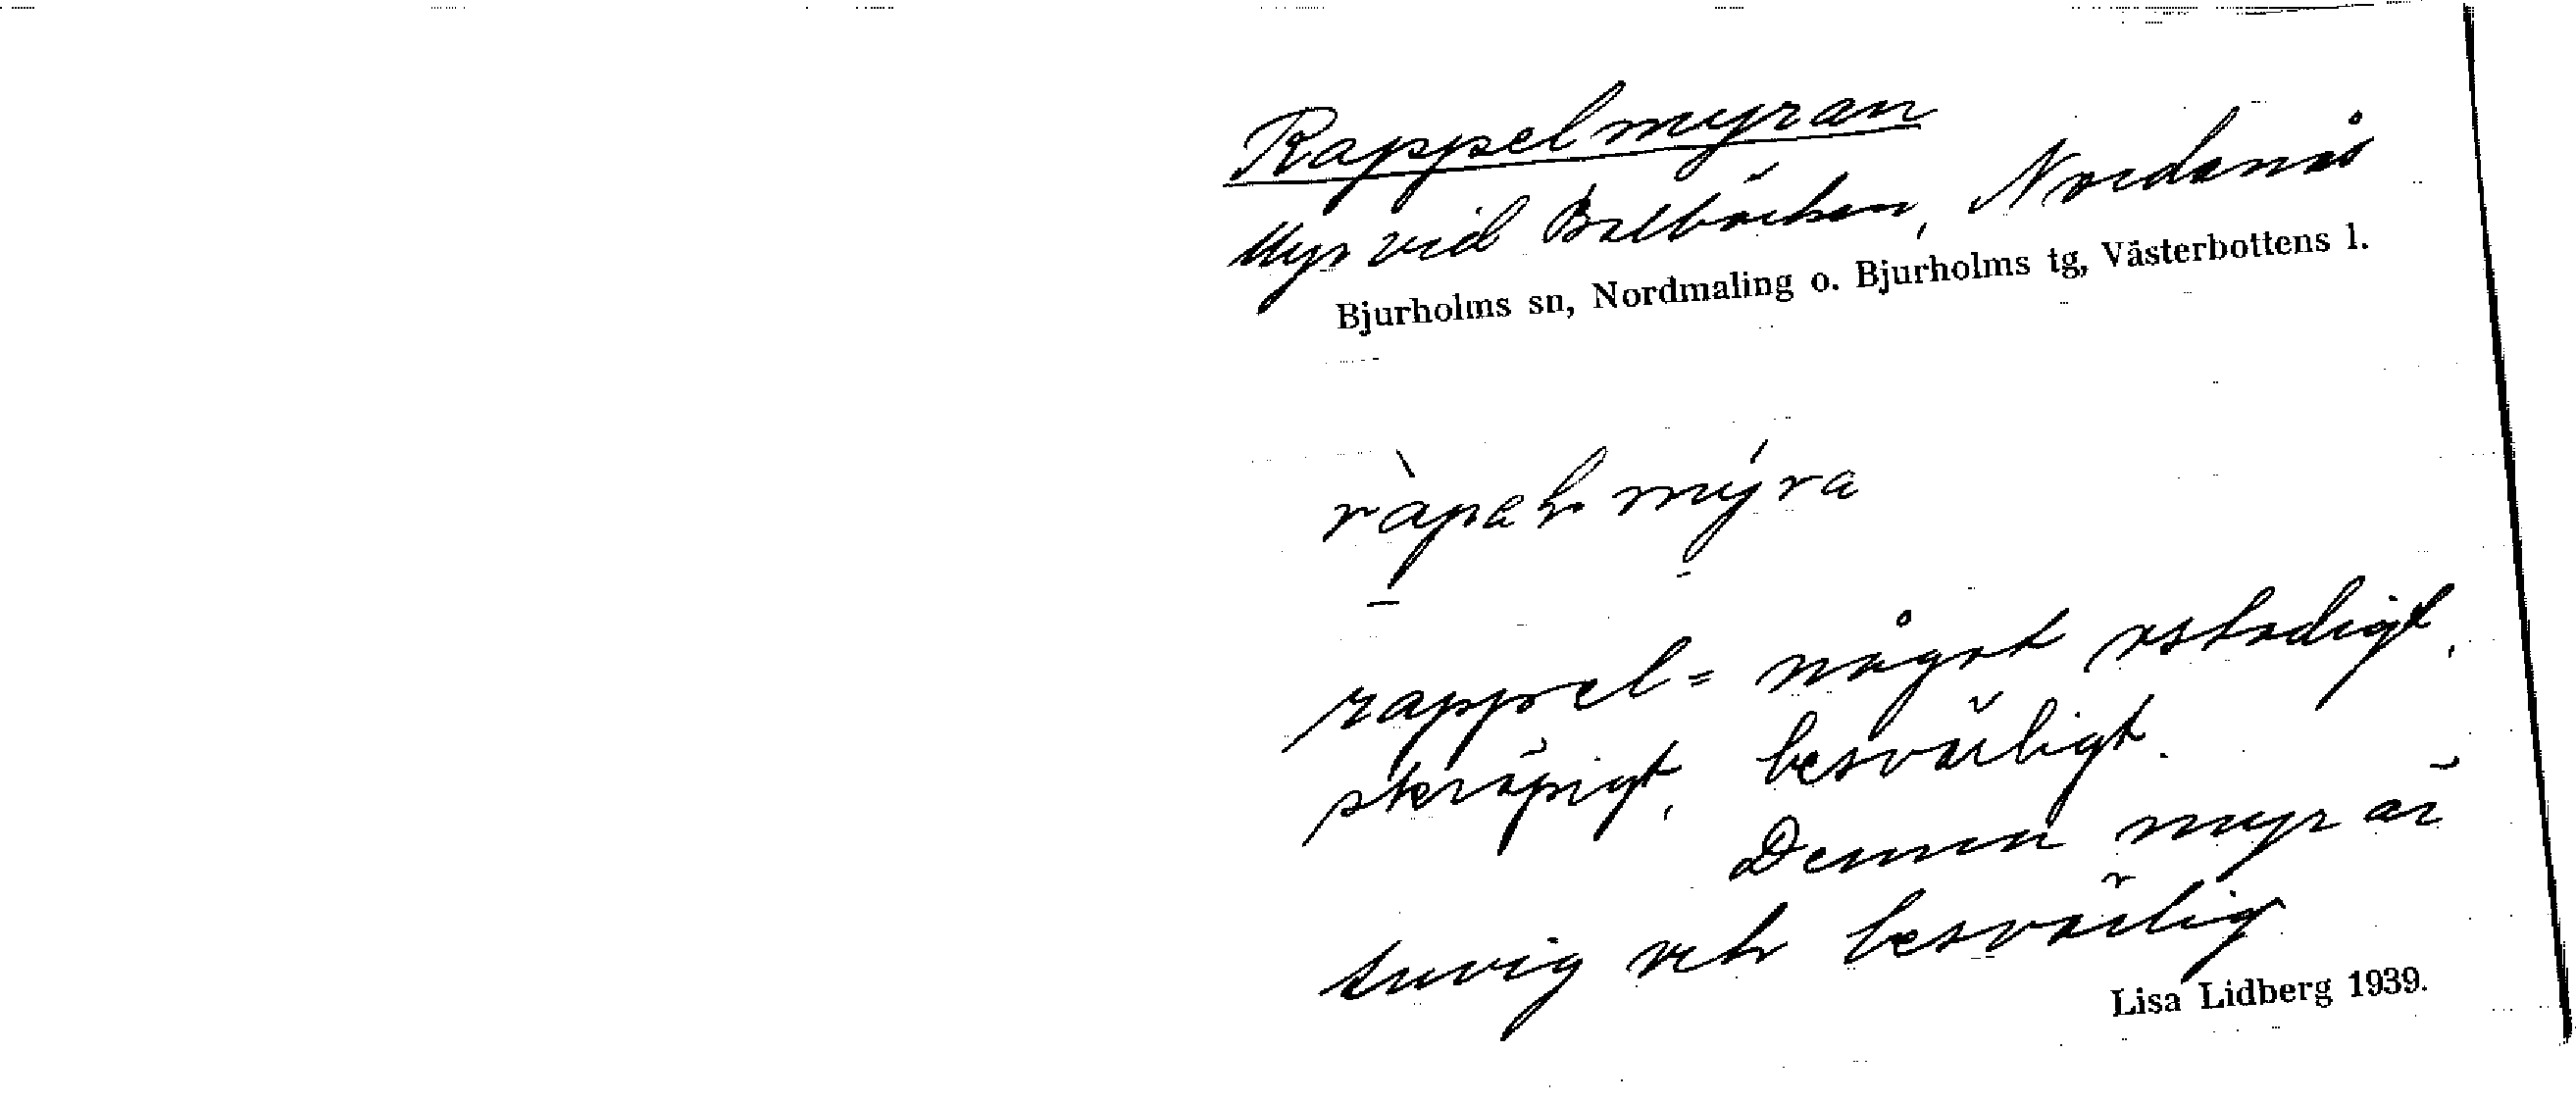 Rappelmyran
Myr vid Balbäcken, Nordanås
Bjurholms sn, Nordmaling o. Bjurholms tg, Västerbottens l.
ràpel mýra
rappel = något ostadigt,
skräpigt, besvärligt.
Denna myr är
tuvig och besvärlig
Lisa Lidberg 1939.